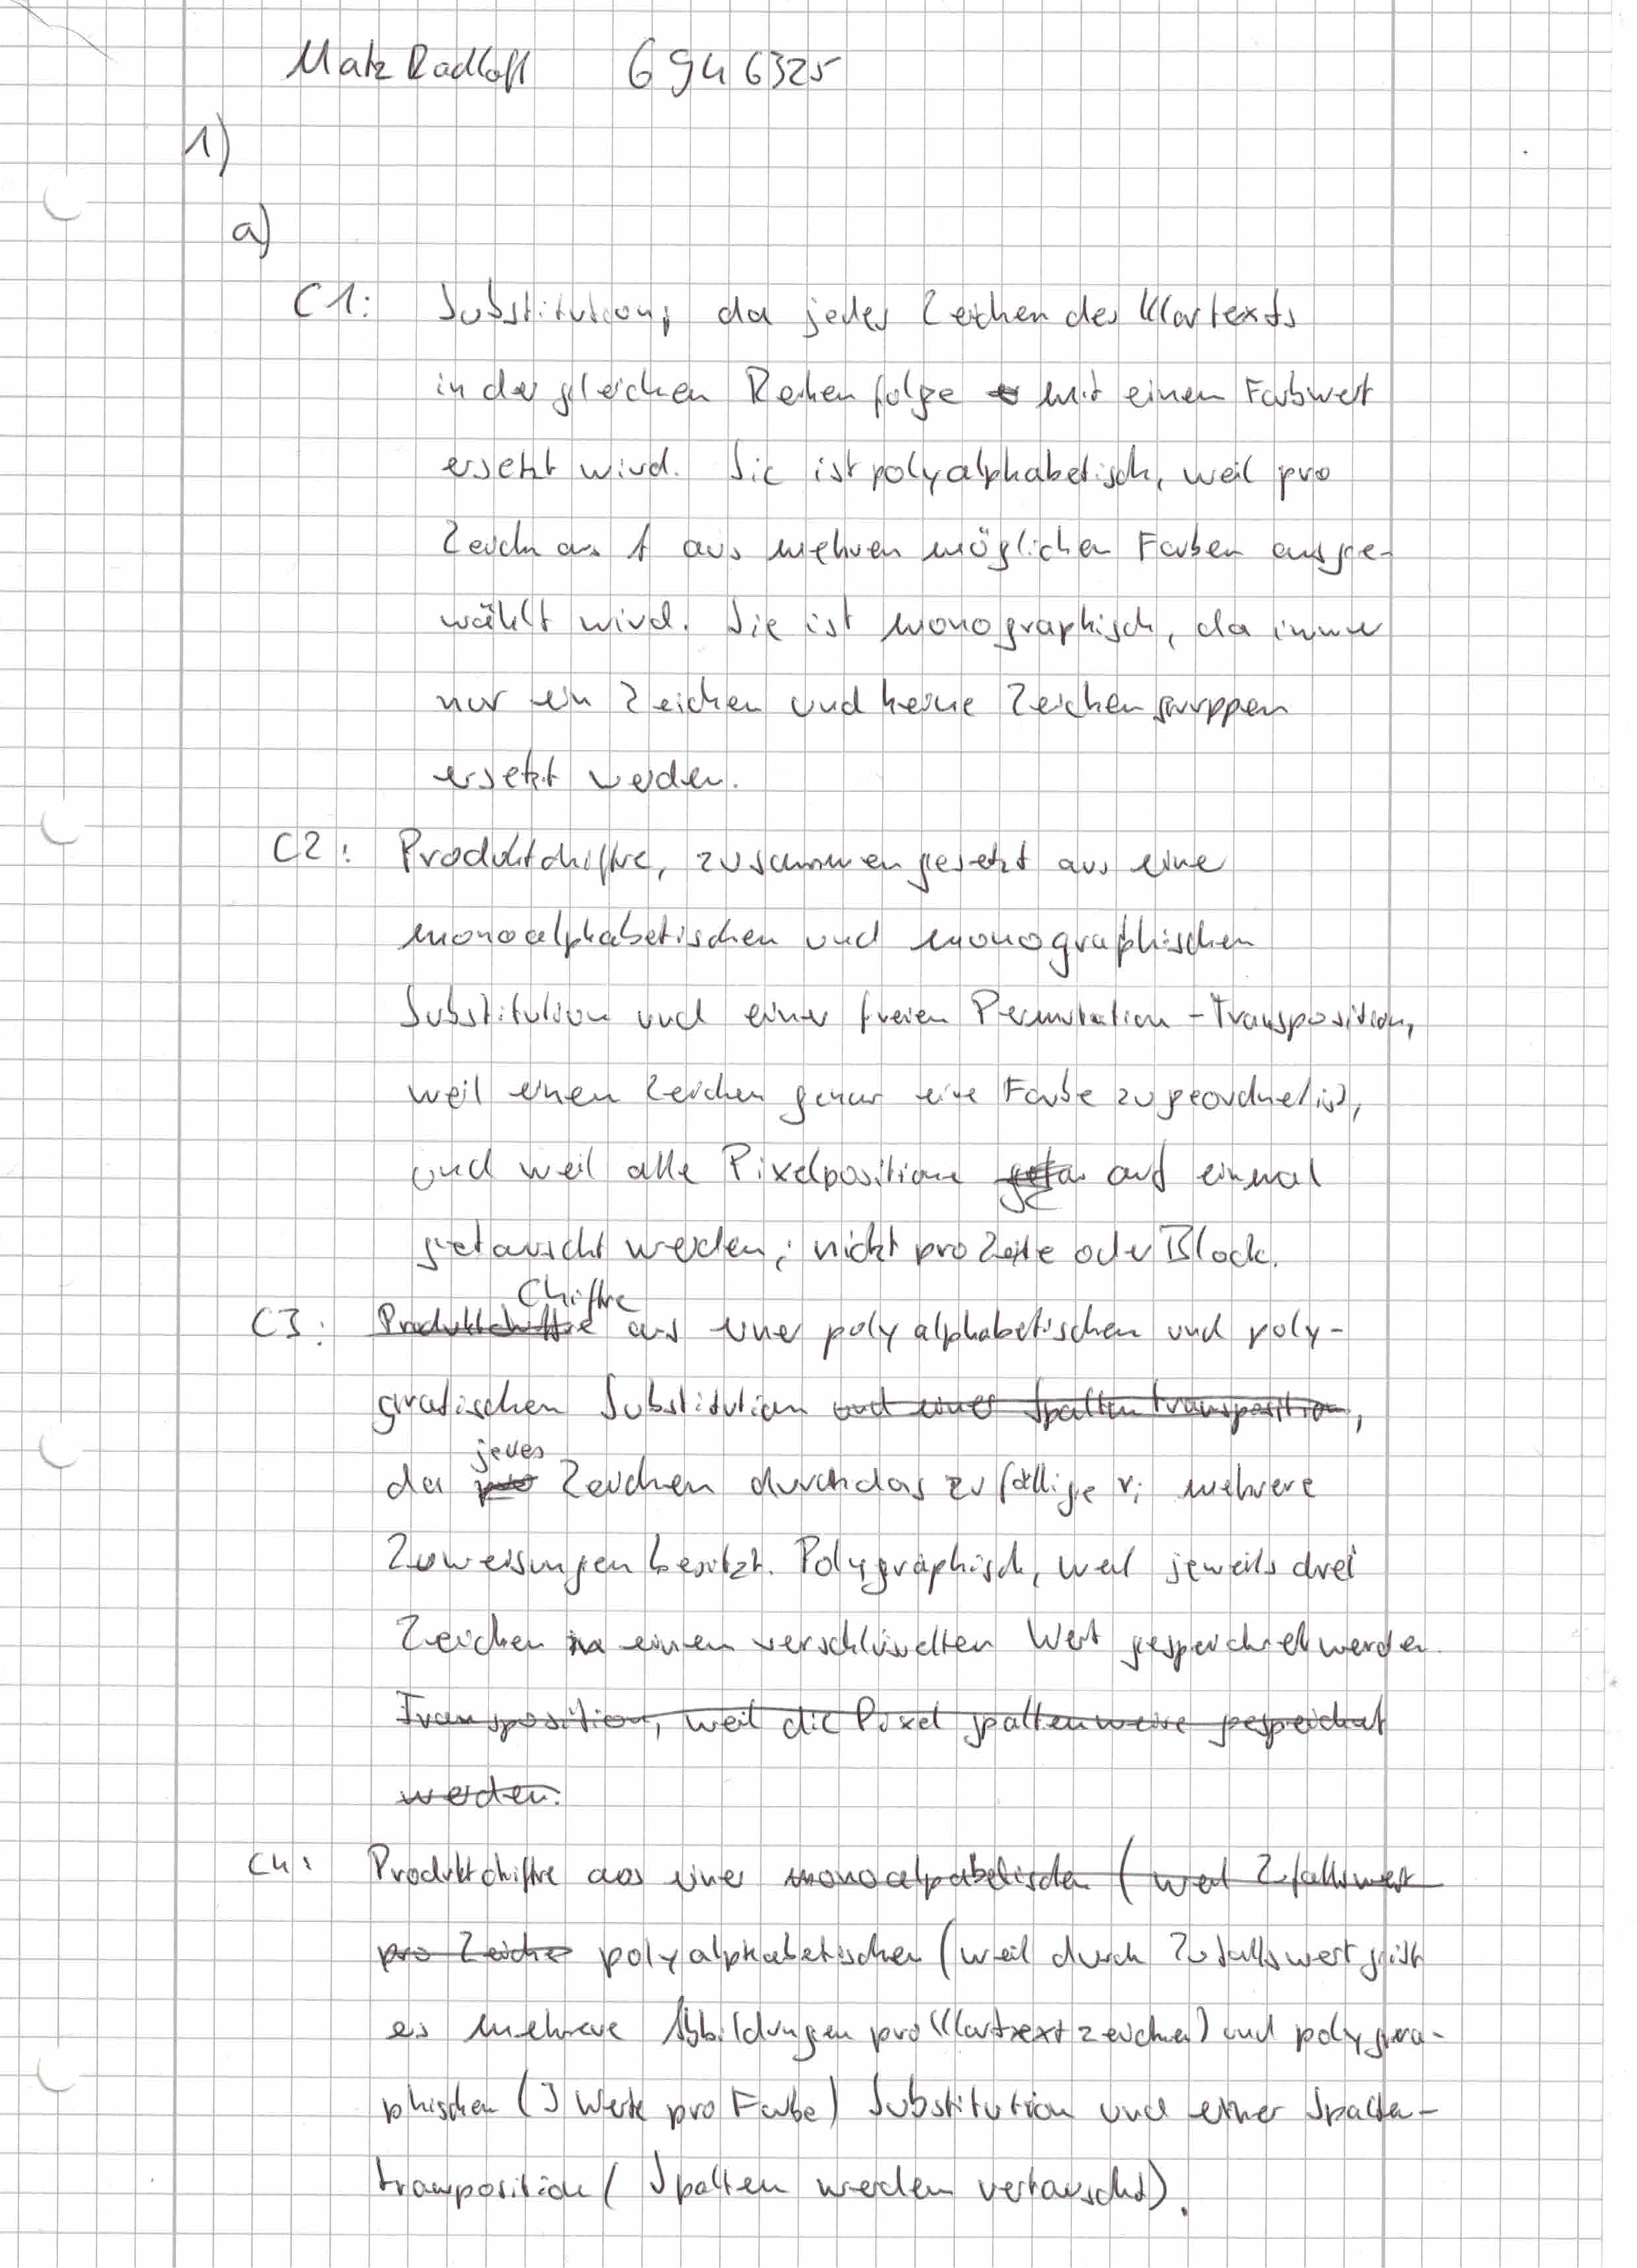 Matz Radloff 6946325
1)
a)
C1: Substitution, da jedes Zeichen des Klartexts
in der gleichen Reihenfolge mit einen Farbwert
ersetzt wird. Sie ist polyalphabetisch, weil pro
Zeichn aus A aus mehren möglichen Farben ausge-
wählt wird. Sie ist monographisch, da immer
nur ein Zeichen und keine Zeichengruppen
ersetzt werden.
C2: Produktchiffre, zusammengesetzt aus eine
monoalphabetischen und monographischen
Substitution und einer freien Permutation-Transposition,
weil einen Zeichen genau eine Farbe zugeordnet ist,
und weil alle Pixelpositione auf einmal
getauscht werden, nicht pro Zeile oder Block.
Chiffre
C3: Produktchiffre aus einer polyalphabetischen und poly-
grafischen Substitution und einer Spaltentransposition,
jedes
da Zeichen durch das zufällige ri mehrere
Zuweisungen besitzt. Polygraphisch, weil jeweils drei
Zeichen in einem verschlüsselten Wert gespeichert werden.
Transposition, weil die Pixel spaltenweise gespeichert
werden.
C4: Produktchiffre aus einer monoalpabetischen (weil Zufallswert
pro Zeichen polyalphabetischen (weil durch Zufallswert gibt
es mehrere Abbildungen pro Klartextzeichen) und polygra-
phischen (3 Werte pro Farbe) Substitution und einer Spalten-
transposition (Spalten werden vertauscht).